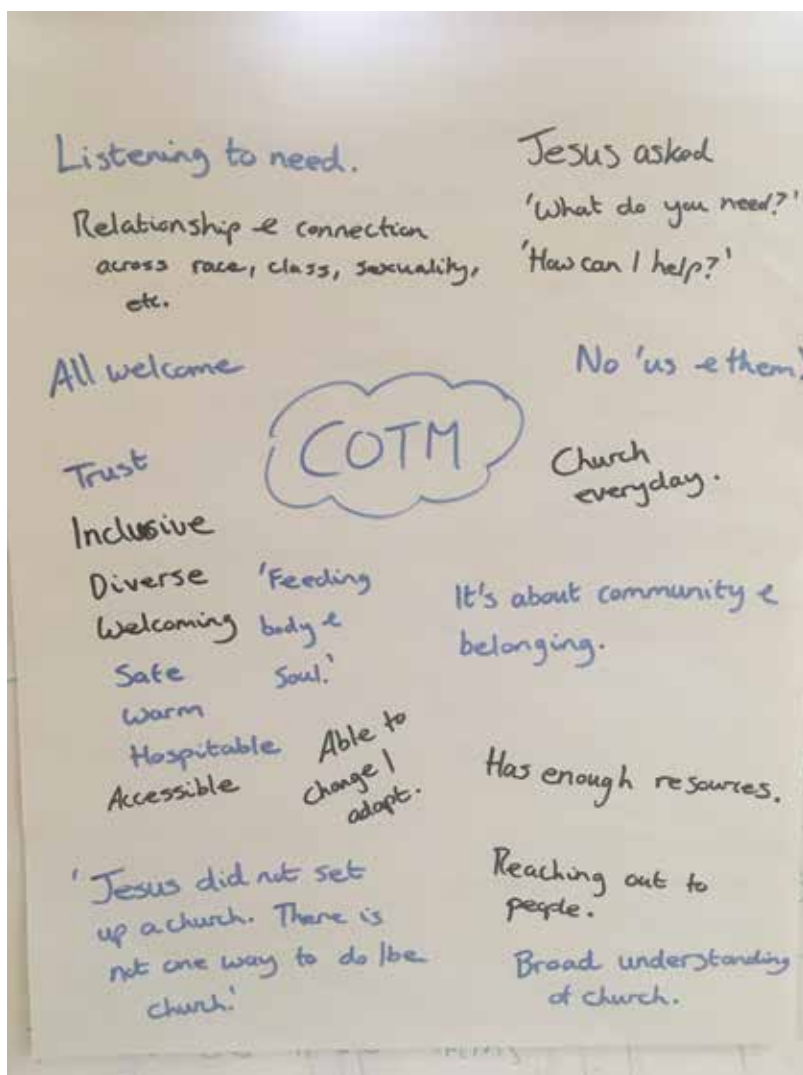 Listening to need.
Relationship & connection
across race, class, sexuality,
etc.
Jesus asked
'What do you need?'
'How can I help?'
All welcome
No 'us & them!'
COTM
Trust
Inclusive
Diverse
Welcoming
Safe
Warm
Hospitable
Accessible
'Feeding
body &
Soul.'
Able to
change/
adapt.
Church
everyday.
It's about community &
belonging.
Has enough resources.
'Jesus did not set
up a church. There is
not one way to do/be
church.'
Reaching out to
people.
Broad understanding
of church.